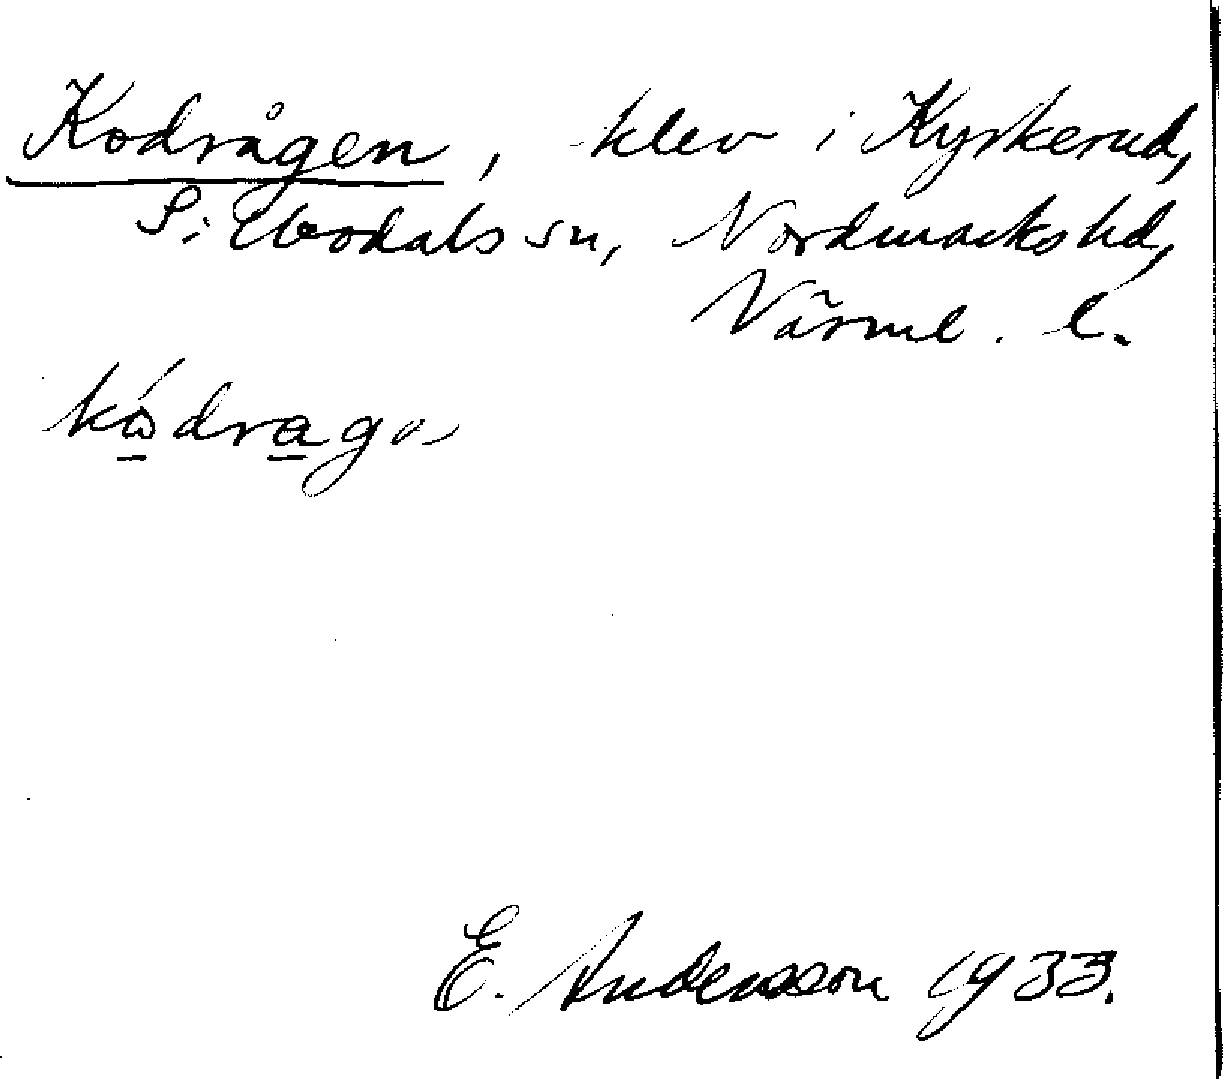 Kodrågen, klev i Kyrkerud,
S: Ebodals sn, Nordmarks hd,
Värml. l.
kó̲dra̲gɑ
E. Andersson 1933.